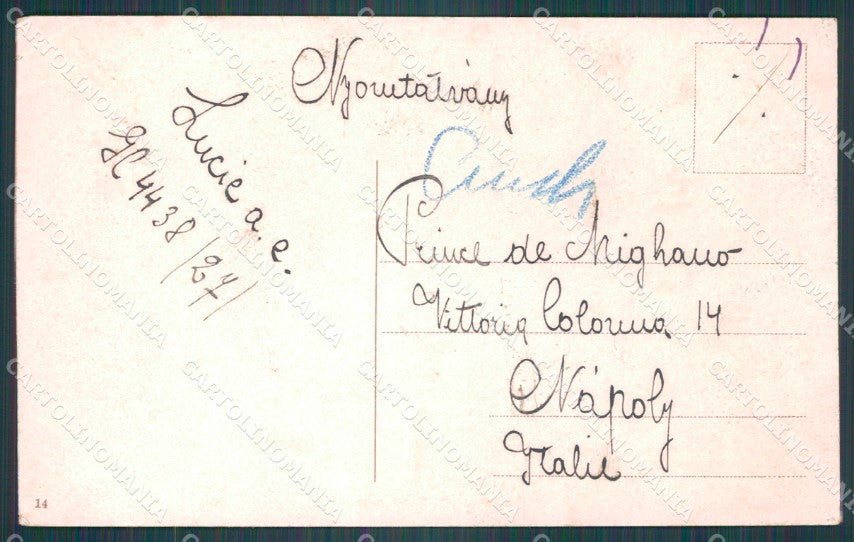 Nyomtatvány
Lucie a. e.
GC 4438/27/
Prince de Mighano
Vittoria Colonna 14
Nápoly
Italie
14
CARTOLINOMANIA